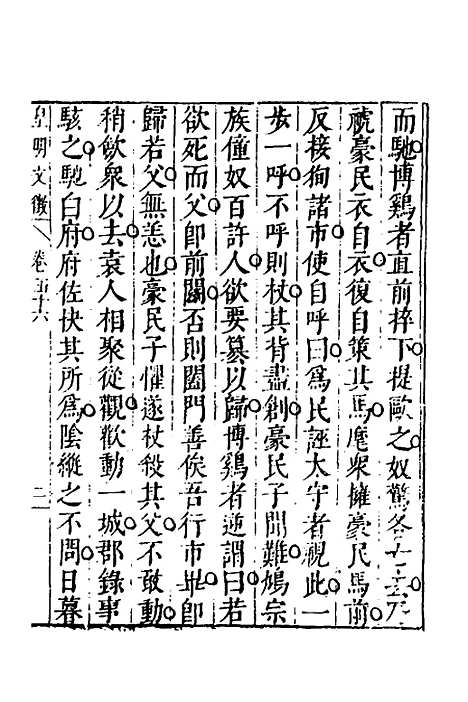 而馳博鷄者直前捽下提毆之奴驚各亡去乃
褫豪民衣自衣復自策其馬麾衆擁豪民馬前
反接狥諸市使自呼曰爲民誣太守者視此一
歩一呼不呼則杖其背盡創豪民子聞難鳩宗
族僮奴百許人欲要篡以歸博鷄者逆謂曰若
欲死而父卽前鬬否則闔門善俟吾行市畢卽
歸若父無恙也豪民子懼遂杖殺其父不敢動
稍歛衆以去袁人相聚從觀歡動一城郡錄事
駭之馳白府府佐快其所爲陰縱之不問日暮
皇明文徵 卷五十六 二